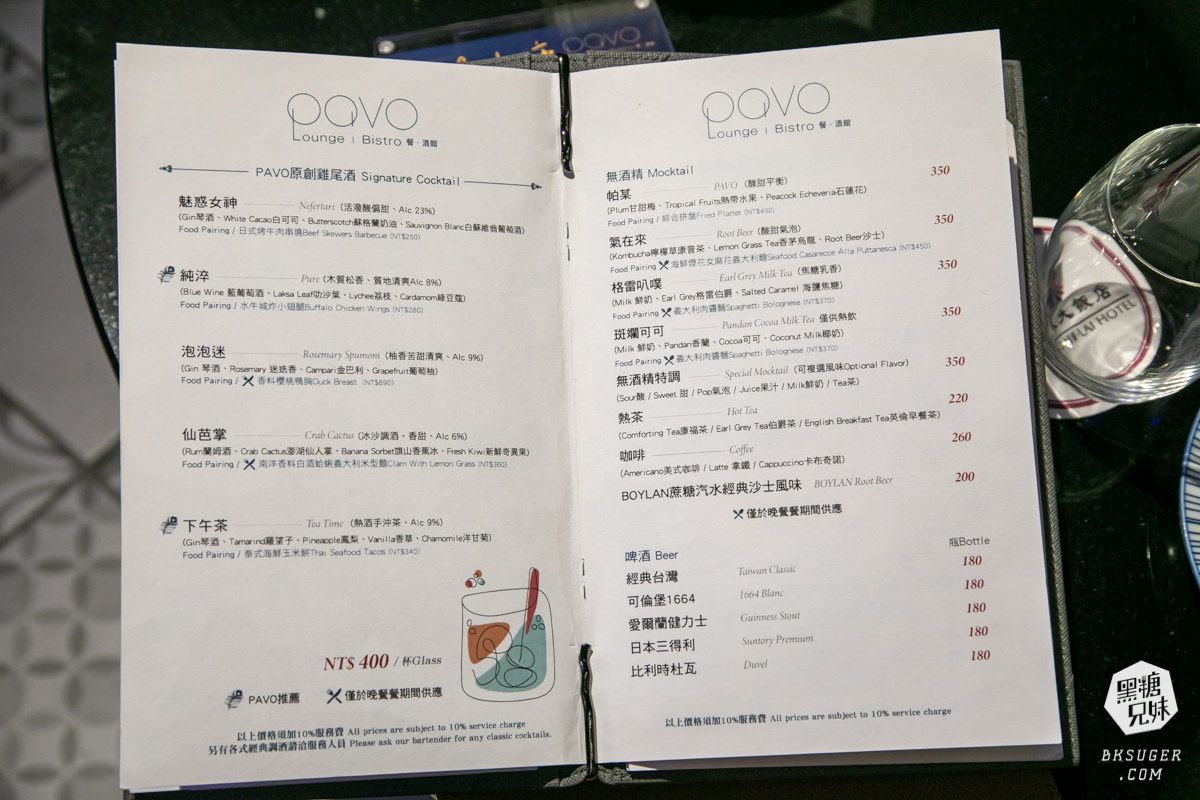 pavo
Lounge | Bistro 餐·酒館
PAVO原創雞尾酒 Signature Cocktail
魅惑女神 Nefertari (活潑酸偏甜、Alc 23%)
(Gin琴酒、White Cacao白可可、Butterscotch蘇格蘭奶油、Sauvignon Blanc白蘇維翁葡萄酒)
Food Pairing / 日式烤牛肉串燒Beef Skewers Barbecue (NT$250)
純淬 Pure (木質松香、質地清爽Alc 8%)
(Blue Wine 藍葡萄酒、Laksa Leaf叻沙葉、Lychee荔枝、Cardamom綠豆蔻)
Food Pairing / 水牛城炸小翅腿Buffalo Chicken Wings (NT$280)
泡泡迷 Rosemary Spumoni (柚香苦甜清爽、Alc 9%)
(Gin 琴酒、Rosemary 迷迭香、Campari金巴利、Grapefruit葡萄柚)
Food Pairing / 香料櫻桃鴨胸Duck Breast (NT$890)
仙芭掌 Crab Cactus (冰沙調酒、香甜、Alc 6%)
(Rum蘭姆酒、Crab Cactus澎湖仙人掌、Banana Sorbet旗山香蕉冰、Fresh Kiwi新鮮奇異果)
Food Pairing / 南洋香料白酒蛤蜊義大利米型麵Clam With Lemon Grass (NT$360)
下午茶 Tea Time (熱酒手沖茶、Alc 9%)
(Gin琴酒、Tamarind羅望子、Pineapple鳳梨、Vanilla香草、Chamomile洋甘菊)
Food Pairing / 泰式海鮮玉米餅Thai Seafood Tacos (NT$340)
NT$ 400 / 杯Glass
PAVO推薦 僅於晚餐餐期間供應
以上價格須加10%服務費 All prices are subject to 10% service charge
另有各式經典調酒請洽服務人員 Please ask our bartender for any classic cocktails.
pavo
Lounge | Bistro 餐·酒館
無酒精 Mocktail
帕某 PAVO (酸甜平衡) 350
(Plum甘甜梅、Tropical Fruits熱帶水果、Peacock Echeveria石蓮花)
Food Pairing / 綜合拼盤Fried Platter (NT$490)
氣在來 Root Beer (酸甜氣泡) 350
(Kombucha檸檬草康普茶、Lemon Grass Tea香茅烏龍、Root Beer沙士)
Food Pairing 海鮮煙花女麻花義大利麵Seafood Casarecce Alla Puttanesca (NT$450)
格雷叭噗 Earl Grey Milk Tea (焦糖乳香) 350
(Milk 鮮奶、Earl Grey格雷伯爵、Salted Caramel 海鹽焦糖)
Food Pairing 義大利肉醬麵Spaghetti Bolognese (NT$370)
斑斕可可 Pandan Cocoa Milk Tea 僅供熱飲 350
(Milk 鮮奶、Pandan香蘭、Cocoa可可、Coconut Milk椰奶)
Food Pairing 義大利肉醬麵Spaghetti Bolognese (NT$370)
無酒精特調 Special Mocktail (可複選風味Optional Flavor) 350
(Sour酸 / Sweet 甜 / Pop氣泡 / Juice果汁 / Milk鮮奶 / Tea茶)
熱茶 Hot Tea 220
(Comforting Tea康福茶 / Earl Grey Tea伯爵茶 / English Breakfast Tea英倫早餐茶)
咖啡 Coffee 260
(Americano美式咖啡 / Latte 拿鐵 / Cappuccino卡布奇諾)
BOYLAN蔗糖汽水經典沙士風味 BOYLAN Root Beer 200
僅於晚餐餐期間供應
啤酒 Beer 瓶Bottle
經典台灣 Taiwan Classic 180
可倫堡1664 1664 Blanc 180
愛爾蘭健力士 Guinness Stout 180
日本三得利 Suntory Premium 180
比利時杜瓦 Duvel 180
以上價格須加10%服務費 All prices are subject to 10% service charge
pavo
大飯店
HOTEL
黑糖
兄妹
BKSUGER
.COM